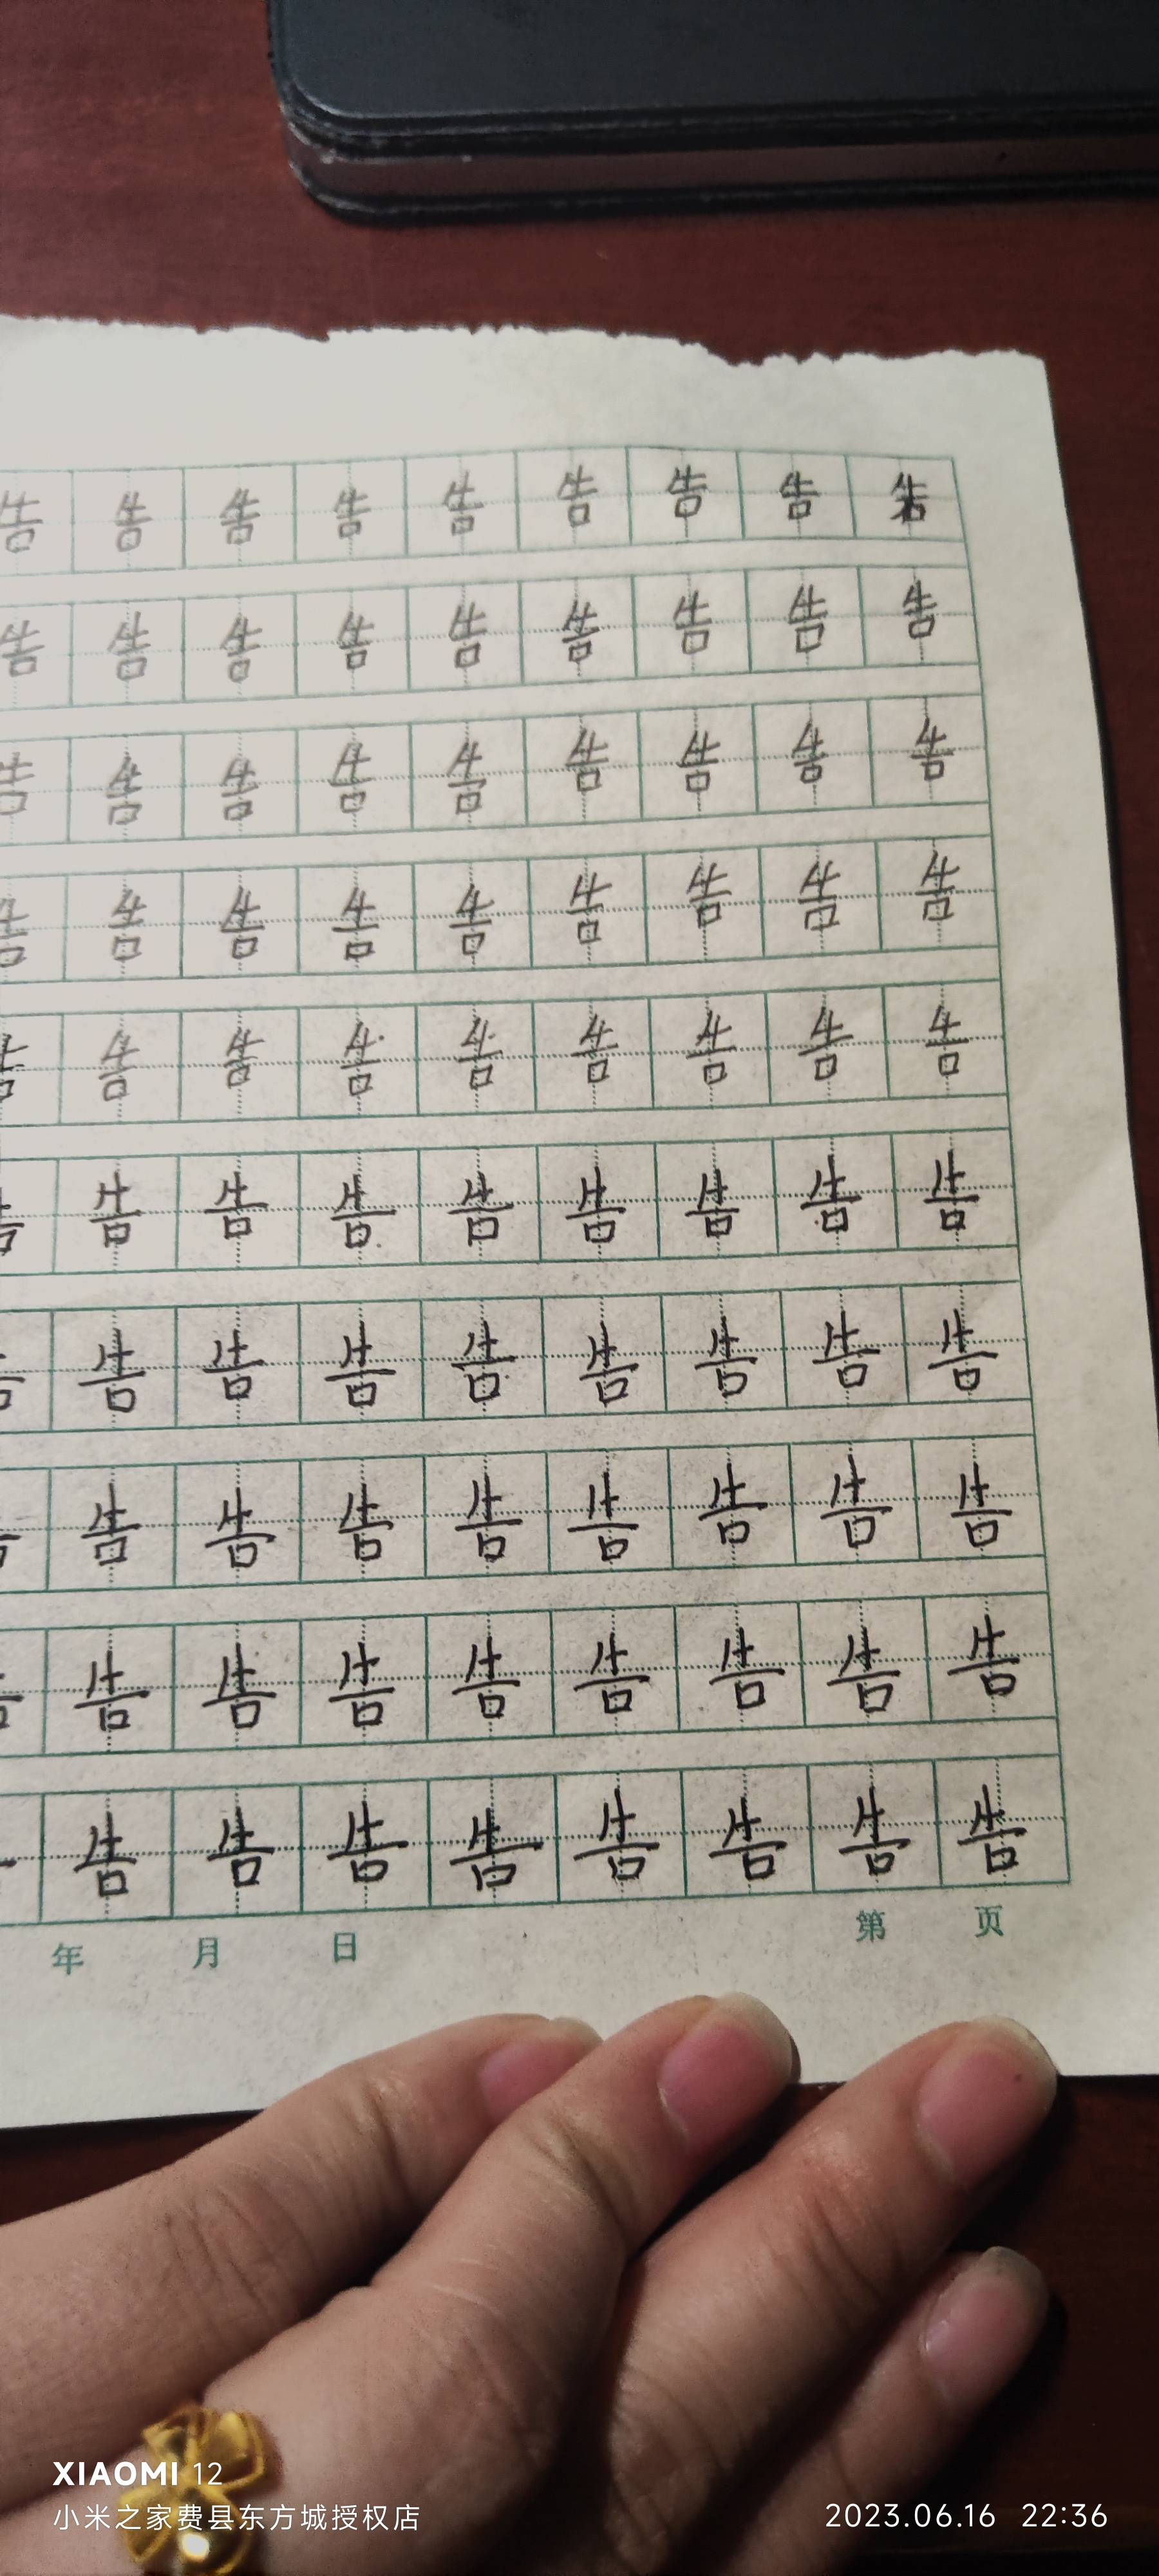 告 告 告 告 告 告 告 告
告 告 告 告 告 告 告 告 告
告 告 告 告 告 告 告 告 告
告 告 告 告 告 告 告 告 告
告 告 告 告 告 告 告 告 告
告 告 告 告 告 告 告 告
告 告 告 告 告 告 告 告
告 告 告 告 告 告 告 告
告 告 告 告 告 告 告 告
告 告 告 告 告 告 告 告
年 月 日 第 页
XIAOMI 12
小米之家费县东方城授权店
2023.06.16 22:36